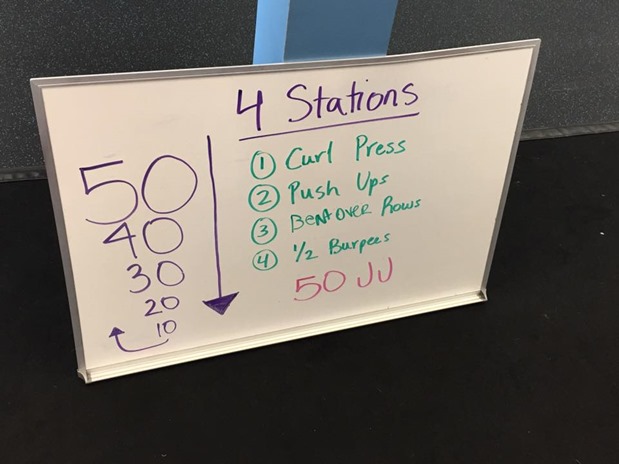 4 Stations
50
40
30
20
10
① Curl Press
② Push Ups
③ Bent Over Rows
④ 1/2 Burpees
50 JJ